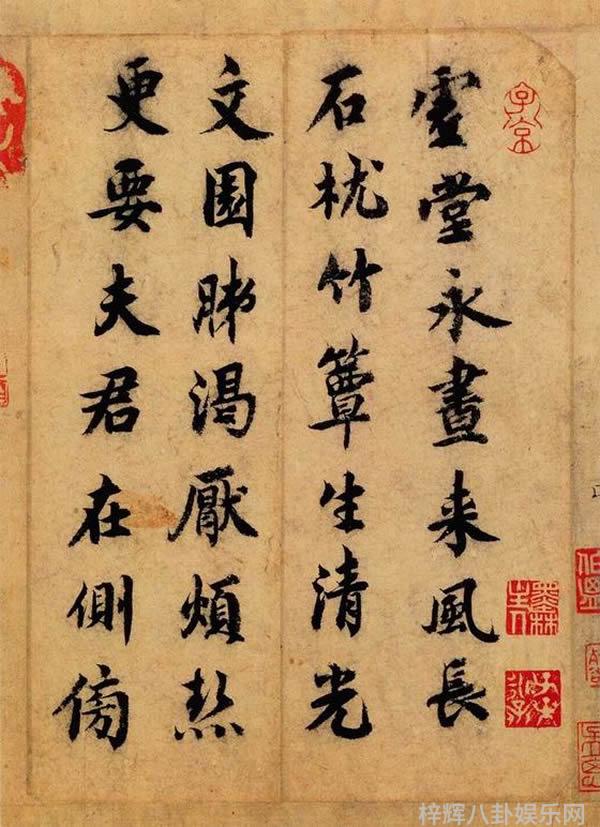 虛堂永晝来風長
石枕竹簟生清光
文園肺渴厭煩熱
更要夫君在側傍
子京
梓辉八卦娱乐网